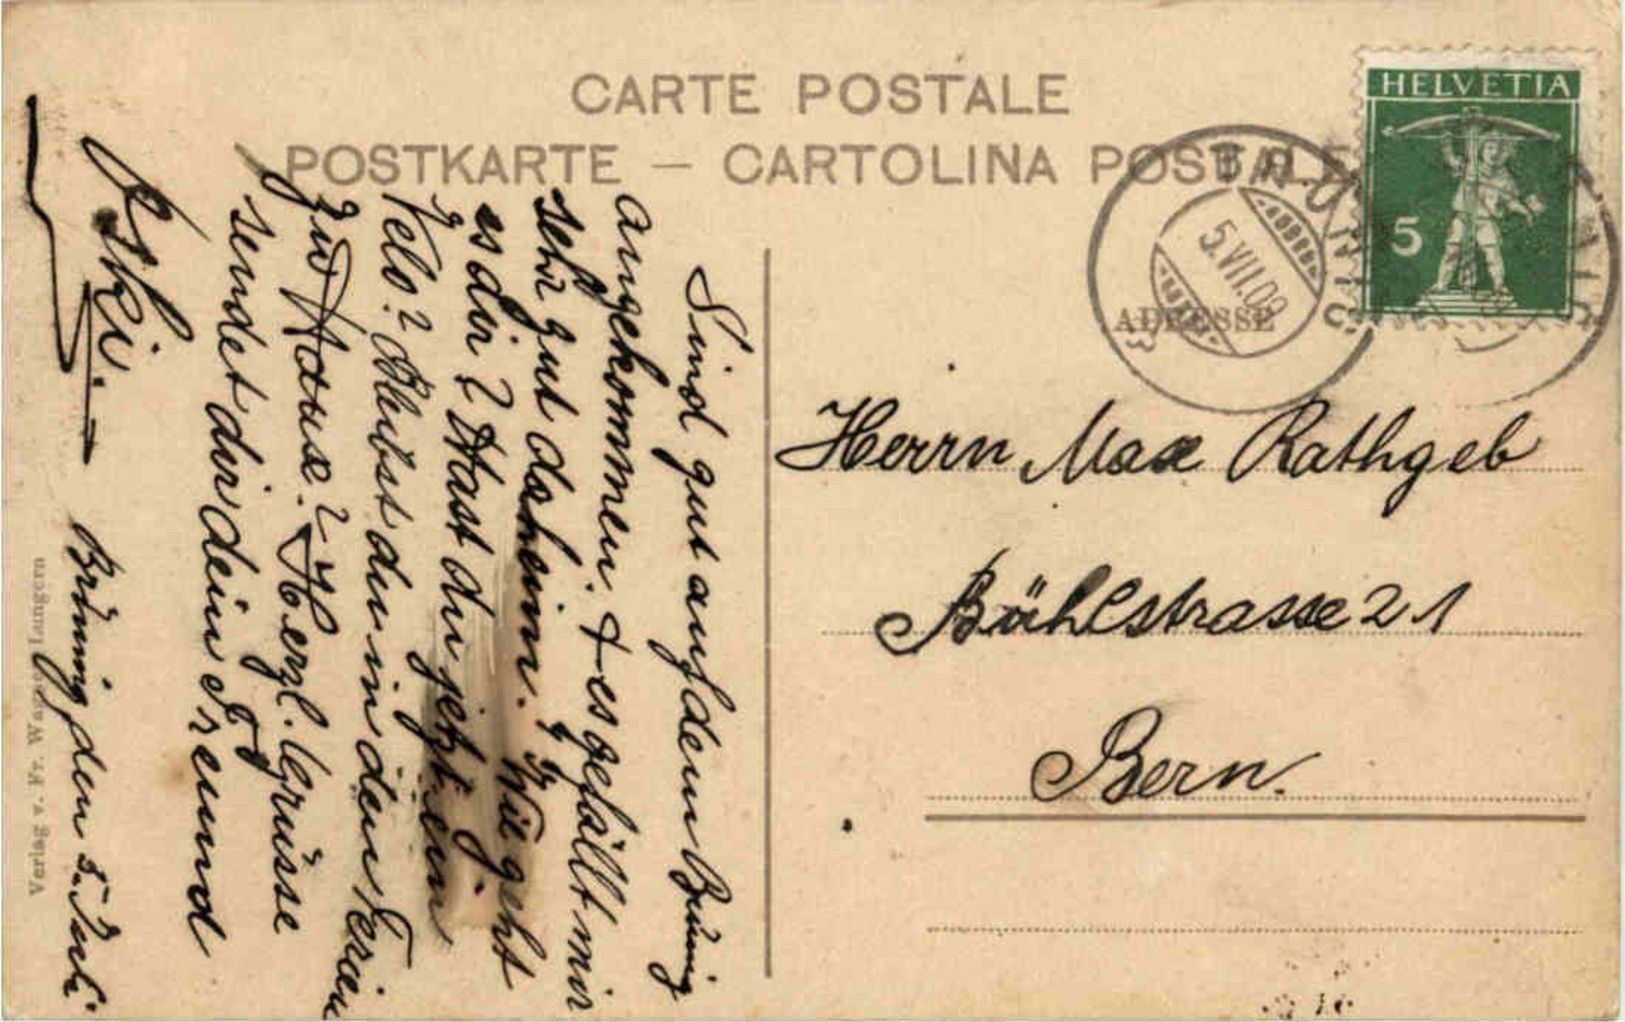 CARTE POSTALE
POSTKARTE — CARTOLINA POSTALE
HELVETIA
5
BRÜNIG
5.VII.09
ADRESSE
Herrn Max Rathgeb
Bühlstrasse 21
Bern.
Sind gut auf dem Brünig
angekommen. + es gefällt mir
sehr gut daheim. Wie geht
es dir? Hast du jetzt ein
Velo? Bleibst du in den Ferien
zu Hause? Herzl. Grüsse
sendet dir dein Freund
Oski.
Brünig den 5. Juli
Verlag v. Fr. Lungern